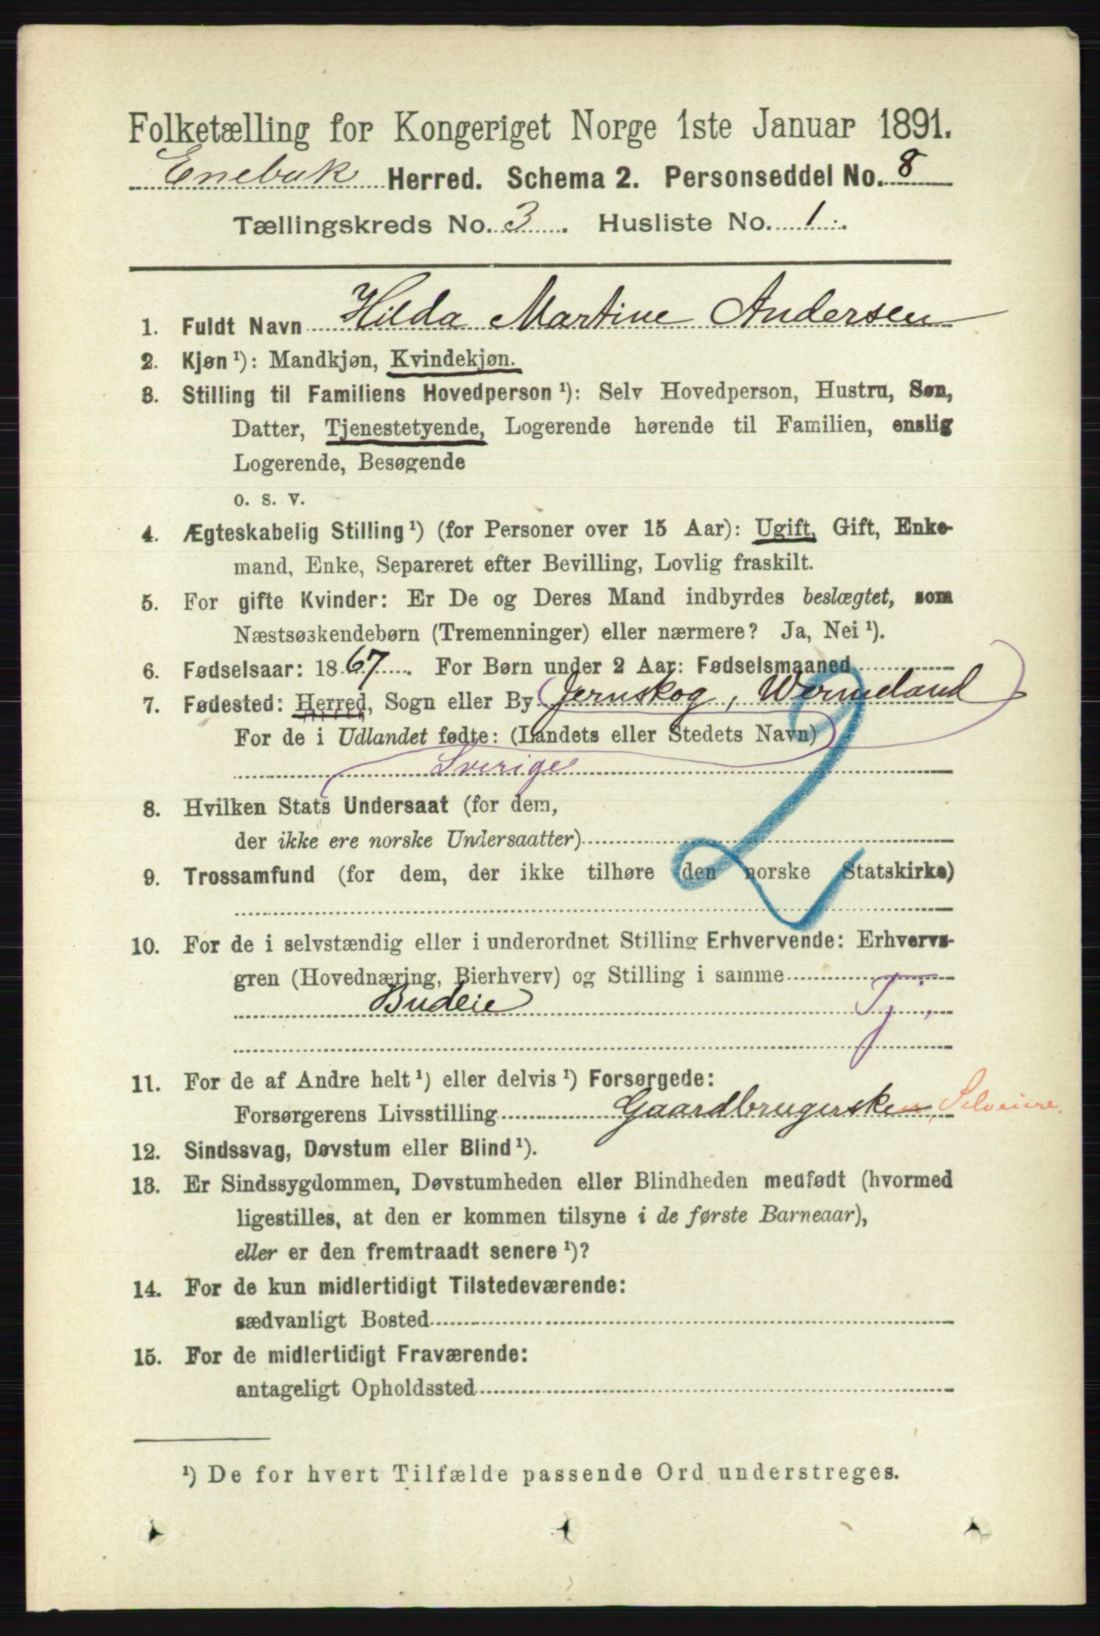 Folketælling for Kongeriget Norge 1ste Januar 1891.
Enebak Herred. Schema 2. Personseddel No. 8
Tællingskreds No. 3. Husliste No. 1.
1. Fuldt Navn Hilda Martine Andersen
2. Kjøn ¹): Mandkjøn, Kvindekjøn.
3. Stilling til Familiens Hovedperson ¹): Selv Hovedperson, Hustru, Søn,
Datter, Tjenestetyende, Logerende hørende til Familien, enslig
Logerende, Besøgende
o. s. v.
4. Ægteskabelig Stilling ¹) (for Personer over 15 Aar): Ugift, Gift, Enke-
mand, Enke, Separeret efter Bevilling, Lovlig fraskilt.
5. For gifte Kvinder: Er De og Deres Mand indbyrdes beslægtet, som
Næstsøskendebørn (Tremenninger) eller nærmere? Ja, Nei ¹).
6. Fødselsaar: 1867. For Børn under 2 Aar: Fødselsmaaned
7. Fødested: Herred, Sogn eller By (Jernskog, Wermeland)
For de i Udlandet fødte: (Landets eller Stedets Navn)
Sverige
8. Hvilken Stats Undersaat (for dem,
der ikke ere norske Undersaatter)
9. Trossamfund (for dem, der ikke tilhøre den norske Statskirke)
2
10. For de i selvstændig eller i underordnet Stilling Erhvervende: Erhvervs-
gren (Hovednæring, Bierhverv) og Stilling i samme
Budeie Tj.
11. For de af Andre helt ¹) eller delvis ¹) Forsørgede:
Forsørgerens Livsstilling Gaardbrugerske, Selveier
12. Sindssvag, Døvstum eller Blind ¹).
13. Er Sindssygdommen, Døvstumheden eller Blindheden medfødt (hvormed
ligestilles, at den er kommen tilsyne i de første Barneaar),
eller er den fremtraadt senere ¹)?
14. For de kun midlertidigt Tilstedeværende:
sædvanligt Bosted
15. For de midlertidigt Fraværende:
antageligt Opholdssted
¹) De for hvert Tilfælde passende Ord understreges.